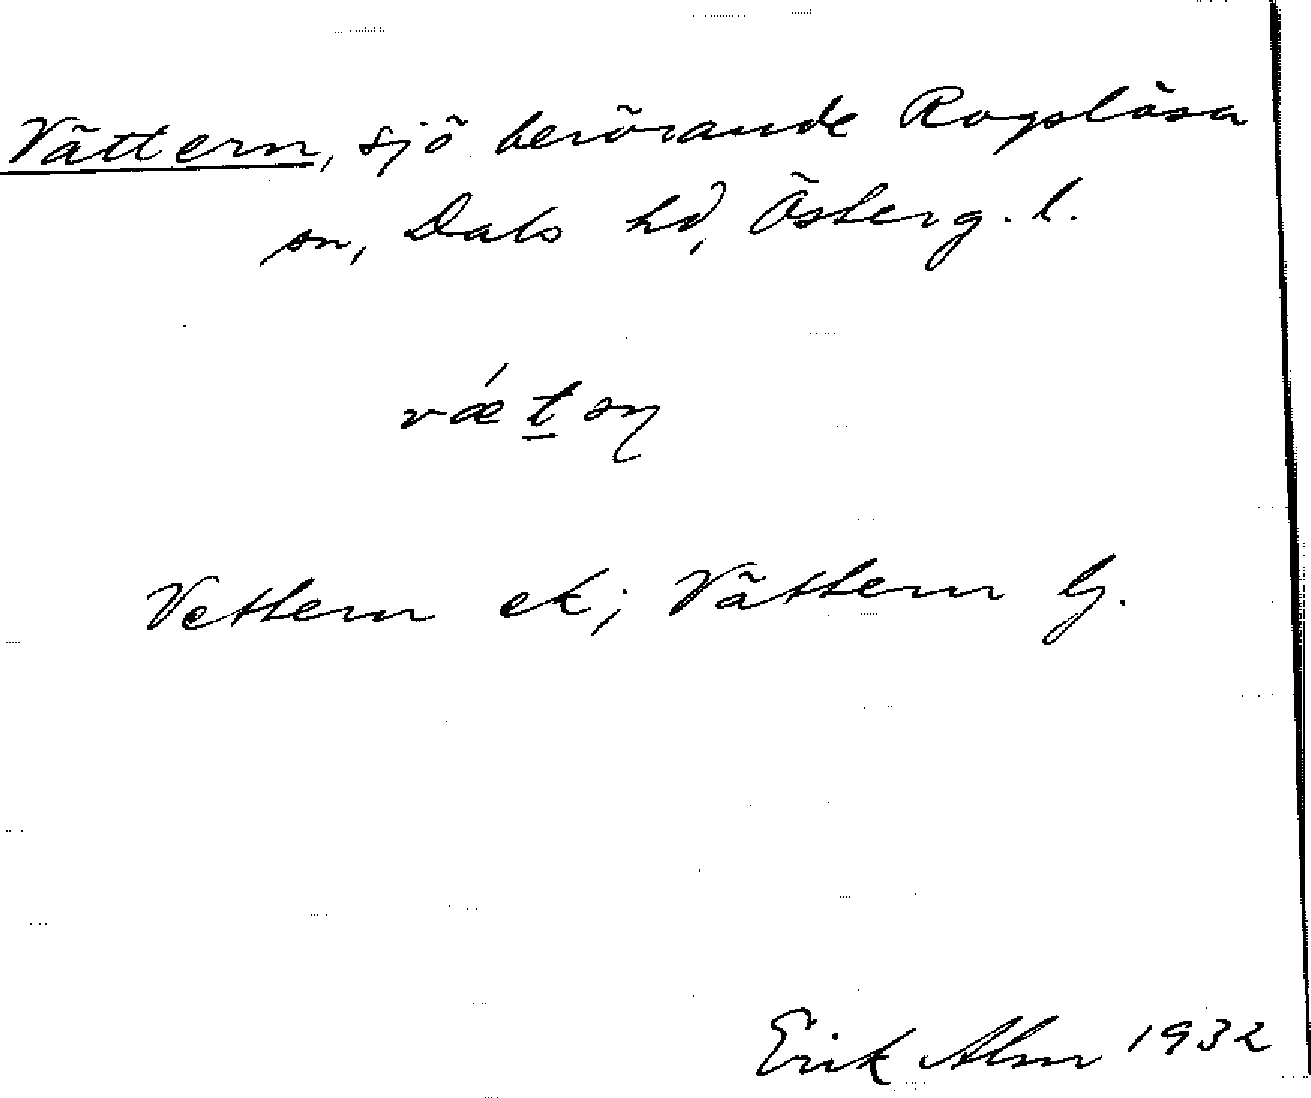 Vättern, sjö berörande Rogslösa
sn, Dals hd, Österg. l.
Vettern ek; Vättern Gj.
Erik Alm 1932